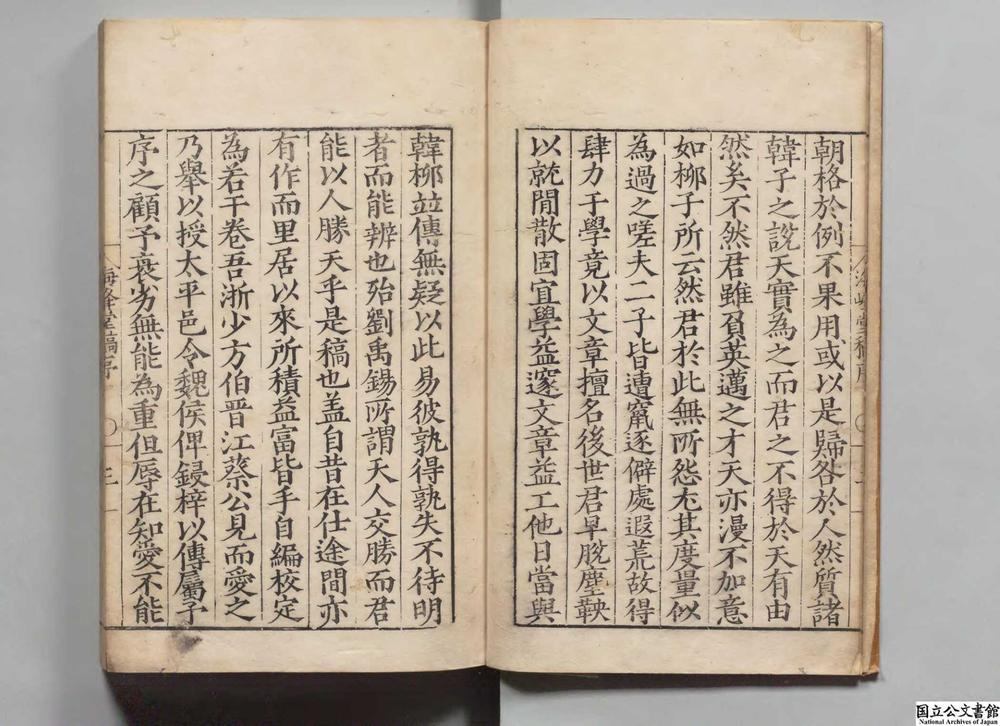 朝格於例不果用或以是歸咎於人然質諸
韓子之說天實為之而君之不得於天有由
然矣不然君雖負英邁之才天亦漫不加意
如栁子所云然君於此無所怨尤其度量似
為過之嗟夫二子皆遭竄逐僻處遐荒故得
肆力于學竟以文章擅名後世君早脫塵鞅
以就閒散固宜學益邃文章益工他日當與
韓栁並傳無疑以此易彼孰得孰失不待明
者而能辨也殆劉禹錫所謂天人交勝而君
能以人勝天乎是稿也盖自昔在仕途間亦
有作而里居以來所積益富皆手自編校定
為若干卷吾浙少方伯晋江蔡公見而愛之
乃舉以授太平邑令魏侯俾鋟梓以傳屬予
序之顧予衰劣無能為重但辱在知愛不能
海峰堂稿序
三
国立公文書館
National Archives of Japan